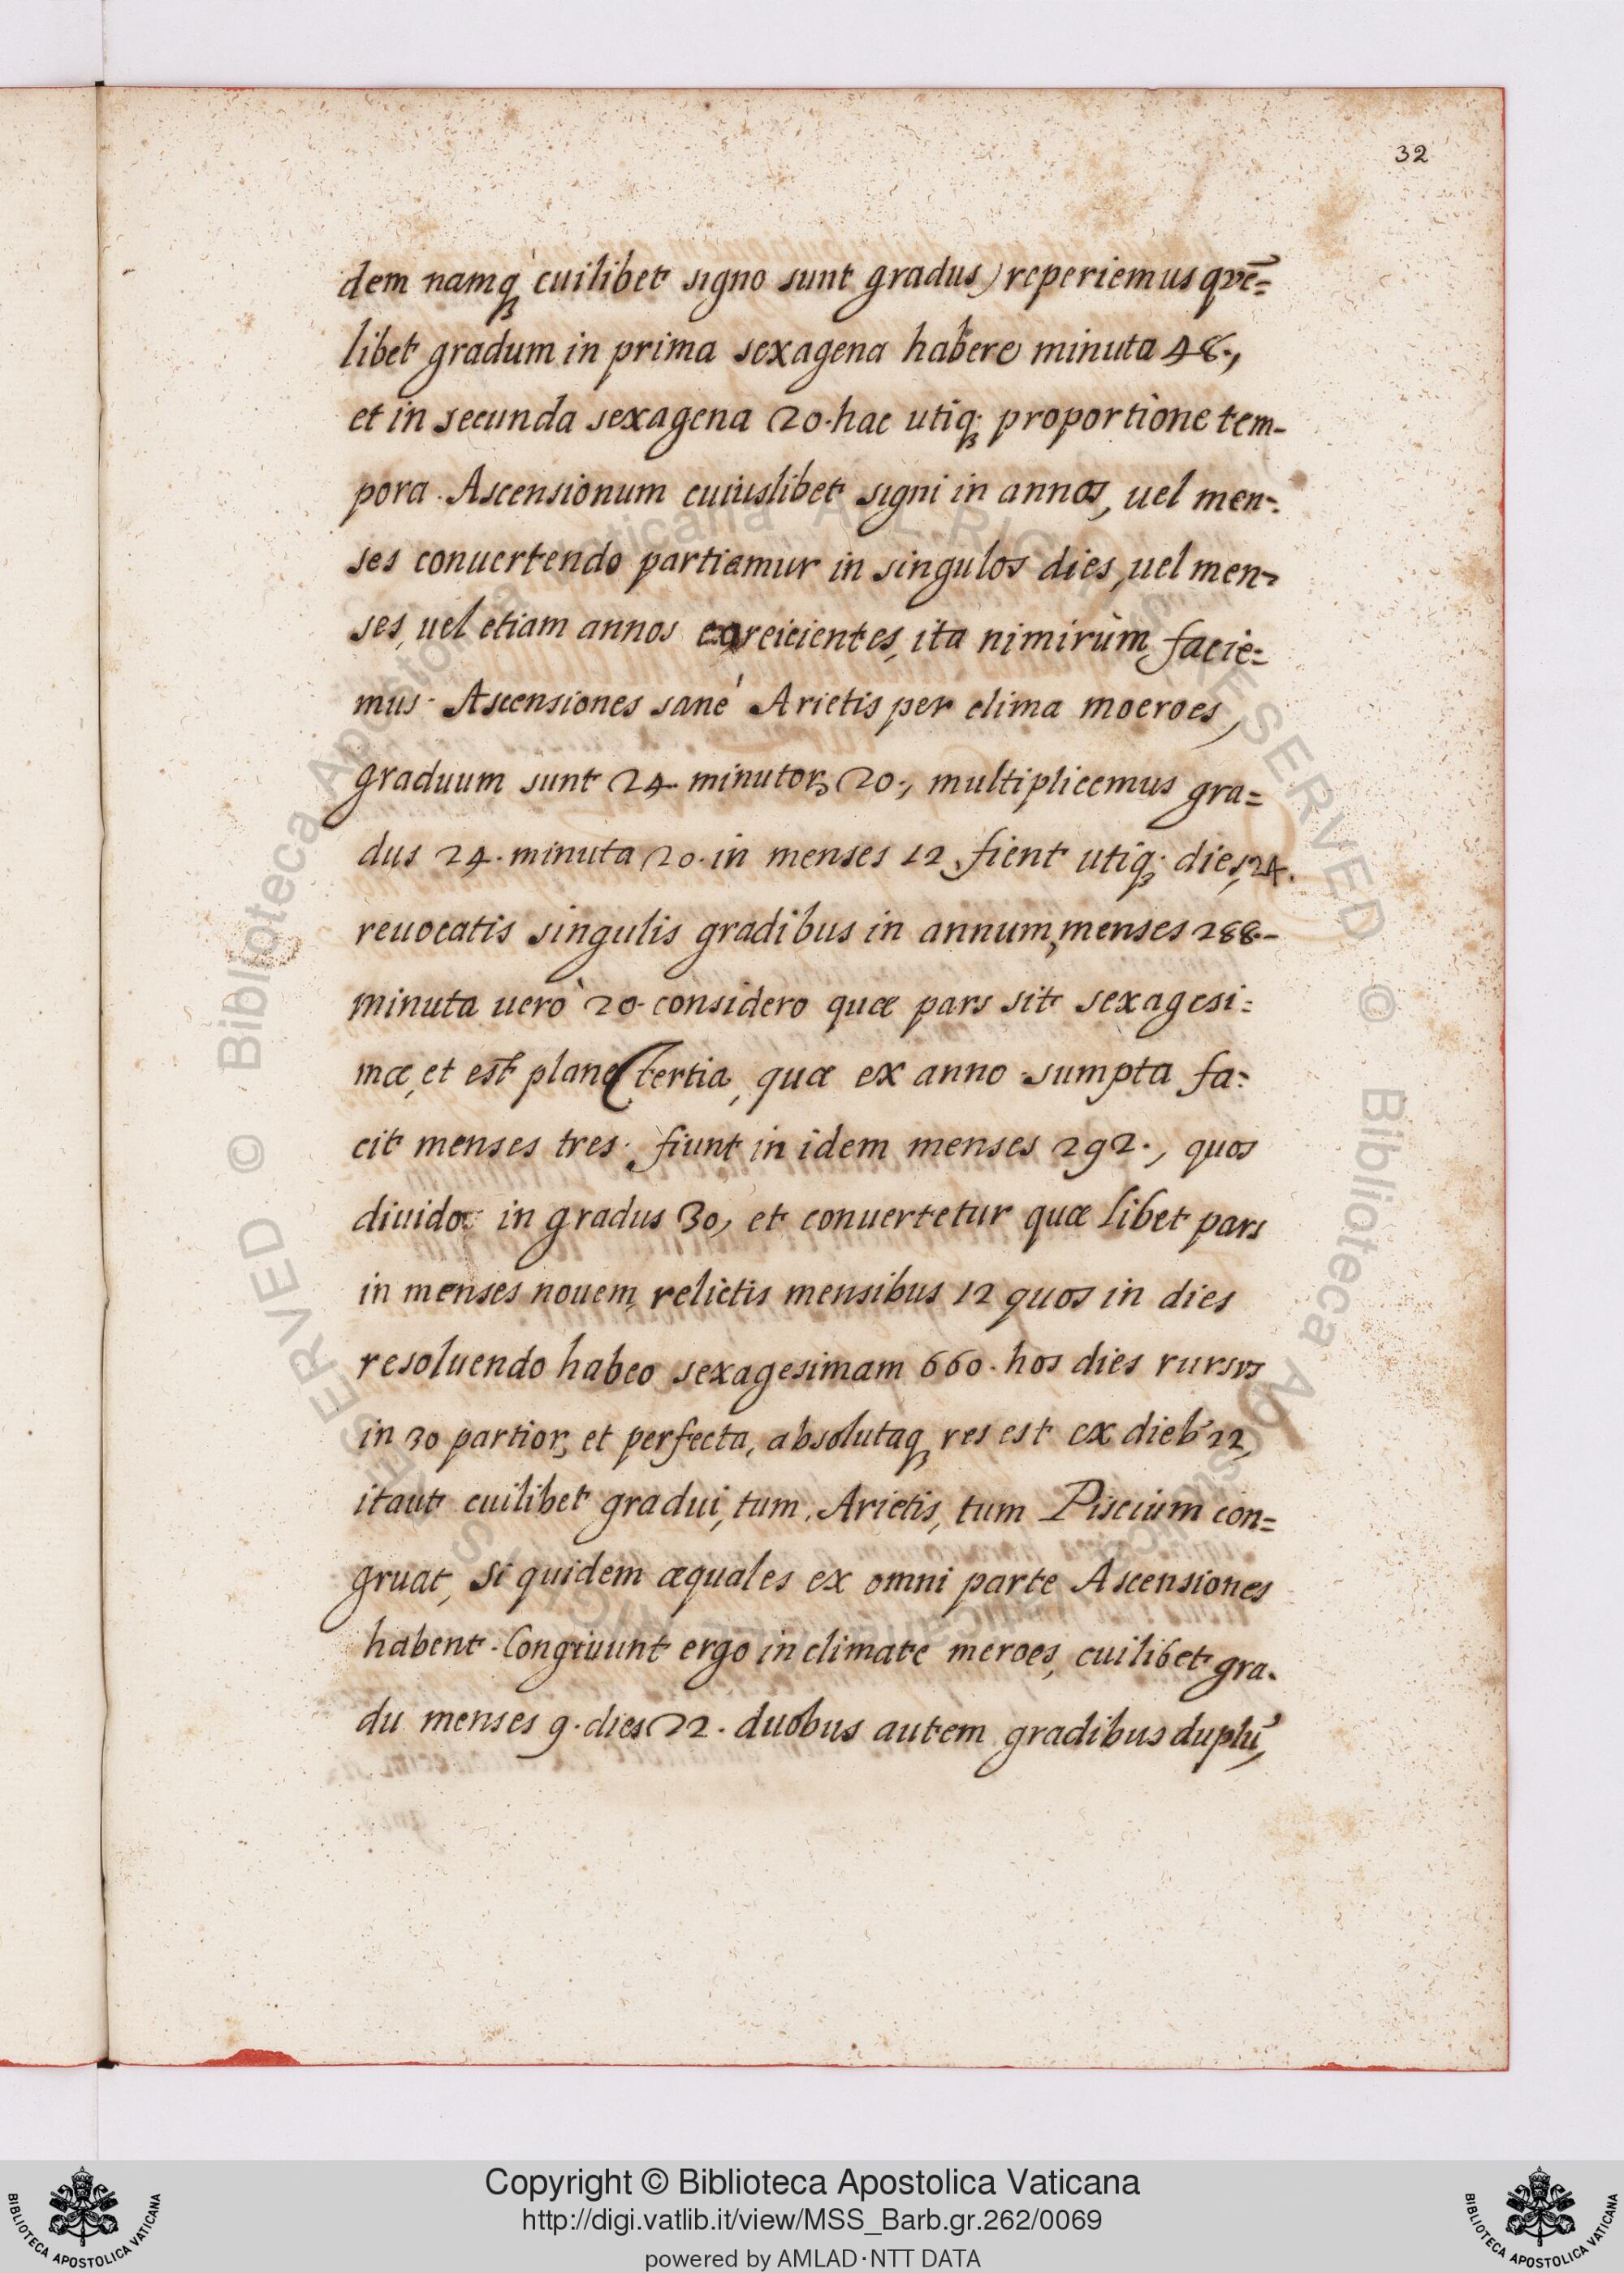 32
dem namq́ꝫ cuilibet signo sunt gradus) reperiemus quē=
libet gradum in prima sexagena habere minuta 48.,
et in secunda sexagena 20. hac utiqꝫ proportione tem-
pora. Ascensionum cuiuslibet signi in annos, uel men-
ses conuertendo partiamur in singulos dies, uel men-
ses, uel etiam annos reicientes, ita nimirùm facie=
mus. Ascensiones sané Arietis per clima moeroes,
graduum sunt 24. minutoꝝ 20., multiplicemus gra=
dus 24. minuta 20. in menses 12, fient utiqꝫ. dies, 24.
reuocatis singulis gradibus in annum, menses 288.-
minuta uerò 20. considero quæ pars sit sexagesi:
mæ, et est plane tertia, quæ ex anno sumpta fa:
cit menses tres. fiunt in idem menses 292., quos
diuido in gradus 30, et conuertetur quæ libet pars
in menses nouem, relictis mensibus 12 quos in dies
resoluendo habeo sexagesimam 660. hos dies rursus
in 30 partior, et perfecta, absolutaqꝫ res est ex dieb' 22,
itaut cuilibet gradui, tum, Arietis, tum Piscium con=
gruat, si quidem æquales ex omni parte Ascensiones
habent. Congruunt ergo in climate meroes, cuilibet gra-
du menses 9. dies 22. duobus autem gradibus duplū,
Copyright © Biblioteca Apostolica Vaticana
http://digi.vatlib.it/view/MSS_Barb.gr.262/0069
powered by AMLAD·NTT DATA
BIBLIOTECA APOSTOLICA VATICANA
BIBLIOTECA APOSTOLICA VATICANA